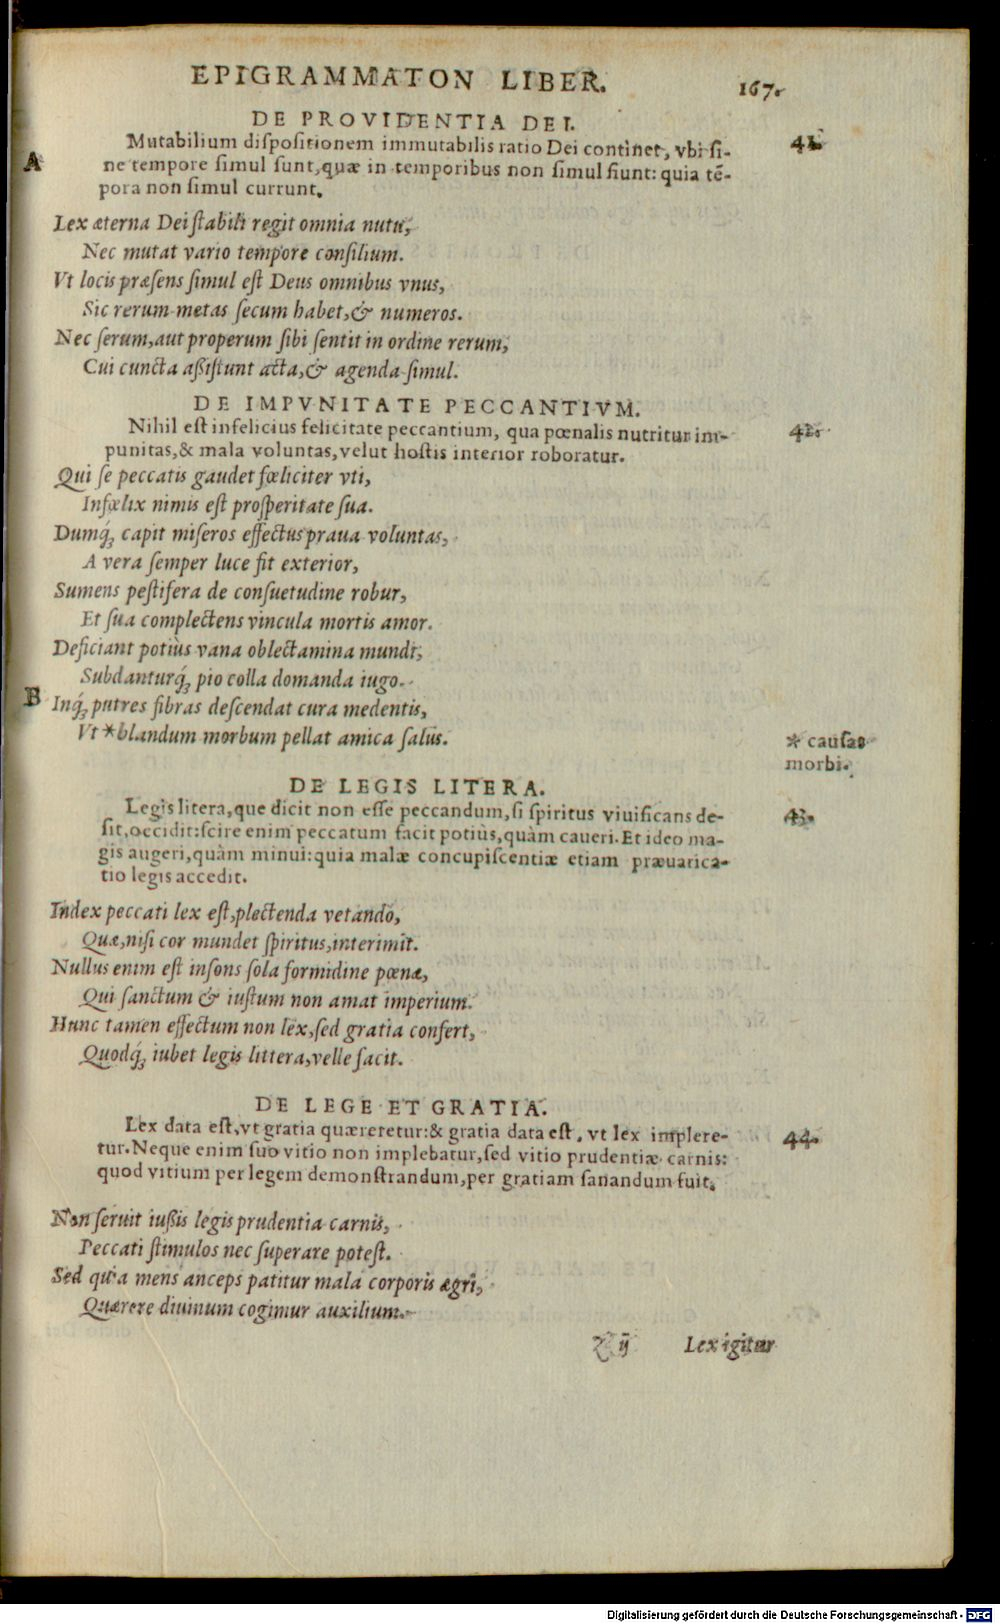 EPIGRAMMATON LIBER. 167.
DE PROVIDENTIA DEI.
A
Mutabilium dispositionem immutabilis ratio Dei continet, vbi si- 41.
ne tempore simul sunt, quæ in temporibus non simul fiunt: quia tē-
pora non simul currunt.
Lex æterna Dei stabili regit omnia nutu,
Nec mutat vario tempore consilium.
Vt locis præsens simul est Deus omnibus vnus,
Sic rerum metas secum habet, & numeros.
Nec serum, aut properum sibi sentit in ordine rerum,
Cui cuncta aßistunt acta, & agenda simul.
DE IMPVNITATE PECCANTIVM.
Nihil est infelicius felicitate peccantium, qua pœnalis nutritur im- 42.
punitas, & mala voluntas, velut hostis interior roboratur.
Qui se peccatis gaudet fœliciter vti,
Infœlix nimis est prosperitate sua.
Dumq́; capit miseros effectus praua voluntas,
A vera semper luce fit exterior,
Sumens pestifera de consuetudine robur,
Et sua complectens vincula mortis amor.
Deficiant potiùs vana oblectamina mundi,
Subdanturq́; pio colla domanda iugo.
B
Inq́; putres fibras descendat cura medentis,
Vt *blandum morbum pellat amica salus. * causas
morbi.
DE LEGIS LITERA.
Legis litera, que dicit non esse peccandum, si spiritus viuificans de- 43.
sit, occidit: scire enim peccatum facit potiùs, quàm caueri. Et ideo ma-
gis augeri, quàm minui: quia malæ concupiscentiæ etiam præuarica-
tio legis accedit.
Index peccati lex est, plectenda vetando,
Quæ, nisi cor mundet spiritus, interimit.
Nullus enim est insons sola formidine pœnæ,
Qui sanctum & iustum non amat imperium.
Hunc tamen effectum non lex, sed gratia confert,
Quodq́; iubet legis littera, velle facit.
DE LEGE ET GRATIA.
Lex data est, vt gratia quæreretur: & gratia data est, vt lex implere- 44.
tur. Neque enim suo vitio non implebatur, sed vitio prudentiæ carnis:
quod vitium per legem demonstrandum, per gratiam sanandum fuit.
Non seruit iußis legis prudentia carnis,
Peccati stimulos nec superare potest.
Sed quia mens anceps patitur mala corporis ægri,
Quærere diuinum cogimur auxilium.
ij Lex igitur
Digitalisierung gefördert durch die Deutsche Forschungsgemeinschaft - DFG